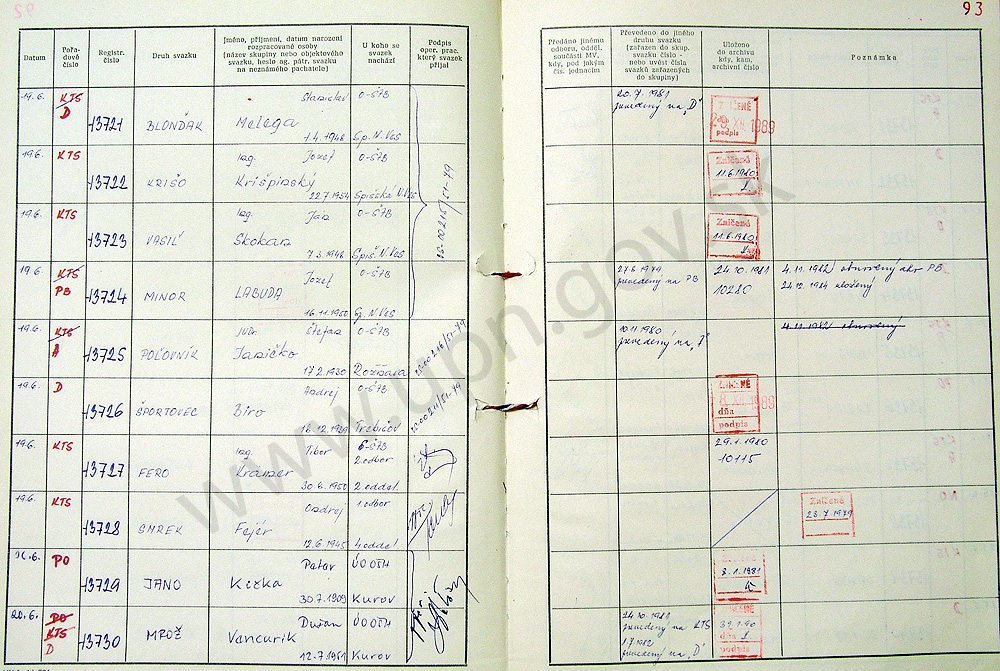 93
Datum
Pořadové číslo
Registr. číslo
Druh svazku
Jméno, příjmení, datum narození
rozpracované osoby
(název skupiny nebo objektového
svazku, heslo ag. pátr. svazku
na neznámého pachatele)
U koho se
svazek
nachází
Podpis
oper. prac.
který svazek
přijal
Předáno jinému
odboru, odděl.
součásti MV,
kdy, pod jakým
čís. jednacím
Převedeno do jiného
druhu svazku
(zařazen do skup.
svazku číslo -
nebo uvést čísla
svazků zařazených
do skupiny)
Uloženo
do archivu
kdy, kam,
archivní číslo
Poznámka
19.6. KTS D 13721 BLONĎAK Stanislav Melega 1.4.1946 O-ŠTB Sp.N.Ves
20.7.1981
prevedený na „D"
1989
19.6. KTS 13722 KRIŠO Ing. Jozef Krišpinský 22.7.1954 O-ŠTB Spišská N.Ves
Zničené
11.6.1980
19.6. KTS 13723 VASIĽ Ing. Ján Skokan 7.3.1946 O-ŠTB Spiš.N.Ves
Zničené
11.6.1980
19.6. KTS PB 13724 MINOR Jozef LABUDA 16.11.1950 O-ŠTB Sp.N.Ves
prevedený na PB
24.10.1981
10280
4.11.1982 obnovený ako PB
24.12.1984 uložený
19.6. KTS A 13725 POĽOVNÍK JUDr. Štefan Janičko 17.2.1930 O-ŠTB Rožňava
10.11.1980
prevedený na
4.11.1982 obnovený
19.6. D 13726 ŠPORTOVEC Andrej Biro O-ŠTB Trebišov
8. XII. 1989
dňa
podpis
19.6. KTS 13727 FERO Ing. Tibor Kramer 30.6.1950 6-ŠTB 2.odbor 2.oddel.
29.1.1980
10115
19.6. KTS 13728 SMREK Ondrej Fejér 12.6.1945 1.odbor 4.oddel
Zničené
23.7.1979
PO 13729 JANO Kezka 30.7.1909 Kurov
Zničené
3.1.1981
20.6. PO KTS D 13730 MROŽ Dušan Vancurik 12.7.1951 Kurov
24.10.1981
prevedený na KTS
1.7.1982
prevedený na „D"
www.upn.gov.sk